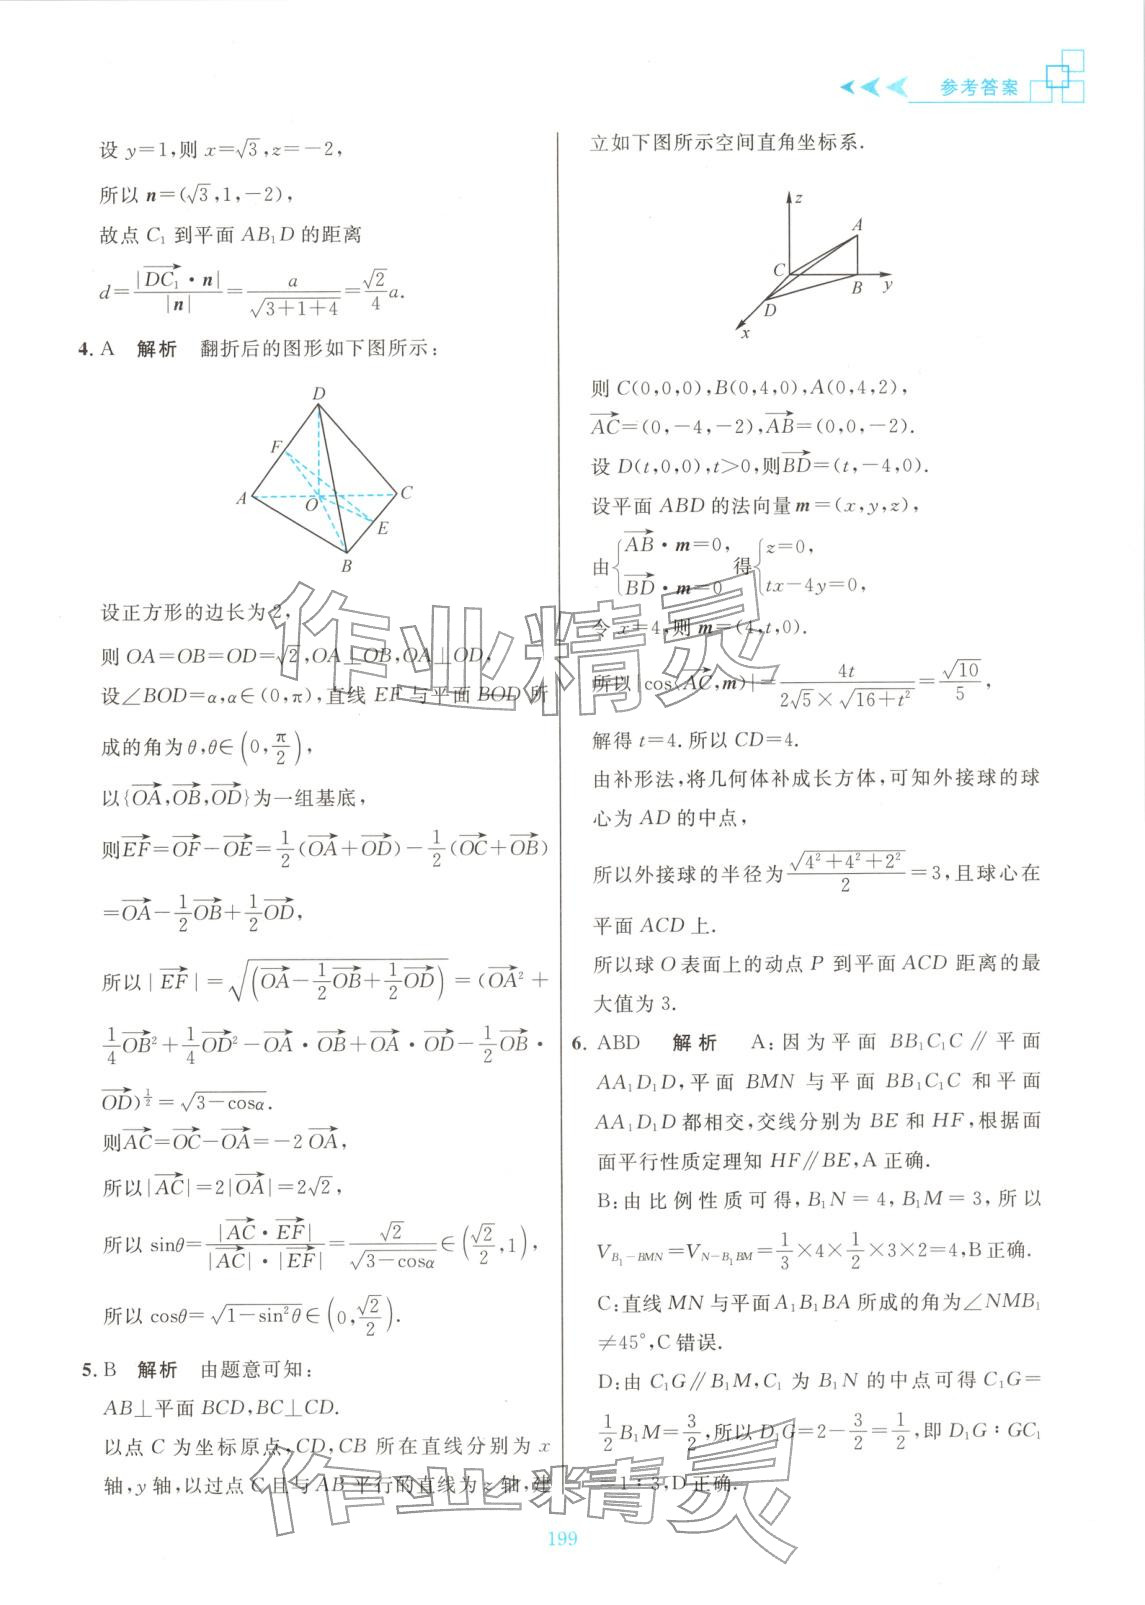 参考答案
设 y=1,则 x=√3,z=-2,
所以 n=(√3,1,-2),
故点 C₁ 到平面 AB₁D 的距离
d=|DC₁→·n|/|n|=a/√(3+1+4)=(√2/4)a.
4. A 解析 翻折后的图形如下图所示:
D
F
A
O
C
E
B
设正方形的边长为 2,
则 OA=OB=OD=√2,OA⊥OB,OA⊥OD,
设∠BOD=α,α∈(0,π),直线 EF 与平面 BOD 所
成的角为 θ,θ∈(0,π/2),
以{OA→,OB→,OD→}为一组基底,
则EF→=OF→-OE→=1/2(OA→+OD→)-1/2(OC→+OB→)
=OA→-1/2OB→+1/2OD→,
所以|EF→|=√((OA→-1/2OB→+1/2OD→))=(OA→²+
1/4OB→²+1/4OD→²-OA→·OB→+OA→·OD→-1/2OB→·
OD→)^(1/2)=√(3-cosα).
则AC→=OC→-OA→=-2OA→,
所以|AC→|=2|OA→|=2√2,
所以 sinθ=|AC→·EF→|/(|AC→|·|EF→|)=√2/√(3-cosα)∈(√2/2,1),
所以 cosθ=√(1-sin²θ)∈(0,√2/2).
5. B 解析 由题意可知:
AB⊥平面 BCD,BC⊥CD.
以点 C 为坐标原点,CD,CB 所在直线分别为 x
轴,y 轴,以过点 C 且与 AB 平行的直线为 z 轴,建
立如下图所示空间直角坐标系.
z
A
C
B
y
D
x
则 C(0,0,0),B(0,4,0),A(0,4,2),
AC→=(0,-4,-2),AB→=(0,0,-2).
设 D(t,0,0),t>0,则BD→=(t,-4,0).
设平面 ABD 的法向量 m=(x,y,z),
由{AB→·m=0, BD→·m=0 得{z=0, tx-4y=0,
令 x=4,则 m=(4,t,0).
所以|cos⟨AC→,m⟩|=4t/(2√5×√(16+t²))=√10/5,
解得 t=4.所以 CD=4.
由补形法,将几何体补成长方体,可知外接球的球
心为 AD 的中点,
所以外接球的半径为√(4²+4²+2²)/2=3,且球心在
平面 ACD 上.
所以球 O 表面上的动点 P 到平面 ACD 距离的最
大值为 3.
6. ABD 解析 A:因为平面 BB₁C₁C∥平面
AA₁D₁D,平面 BMN 与平面 BB₁C₁C 和平面
AA₁D₁D 都相交,交线分别为 BE 和 HF,根据面
面平行性质定理知 HF∥BE,A 正确.
B:由比例性质可得,B₁N=4,B₁M=3,所以
V_{B₁-BMN}=V_{N-B₁BM}=1/3×4×1/2×3×2=4,B 正确.
C:直线 MN 与平面 A₁B₁BA 所成的角为∠NMB₁
≠45°,C 错误.
D:由 C₁G∥B₁M,C₁ 为 B₁N 的中点可得 C₁G=
1/2B₁M=3/2,所以 D₁G=2-3/2=1/2,即 D₁G∶GC₁
=1∶3,D 正确.
199
作业精灵
作业精灵